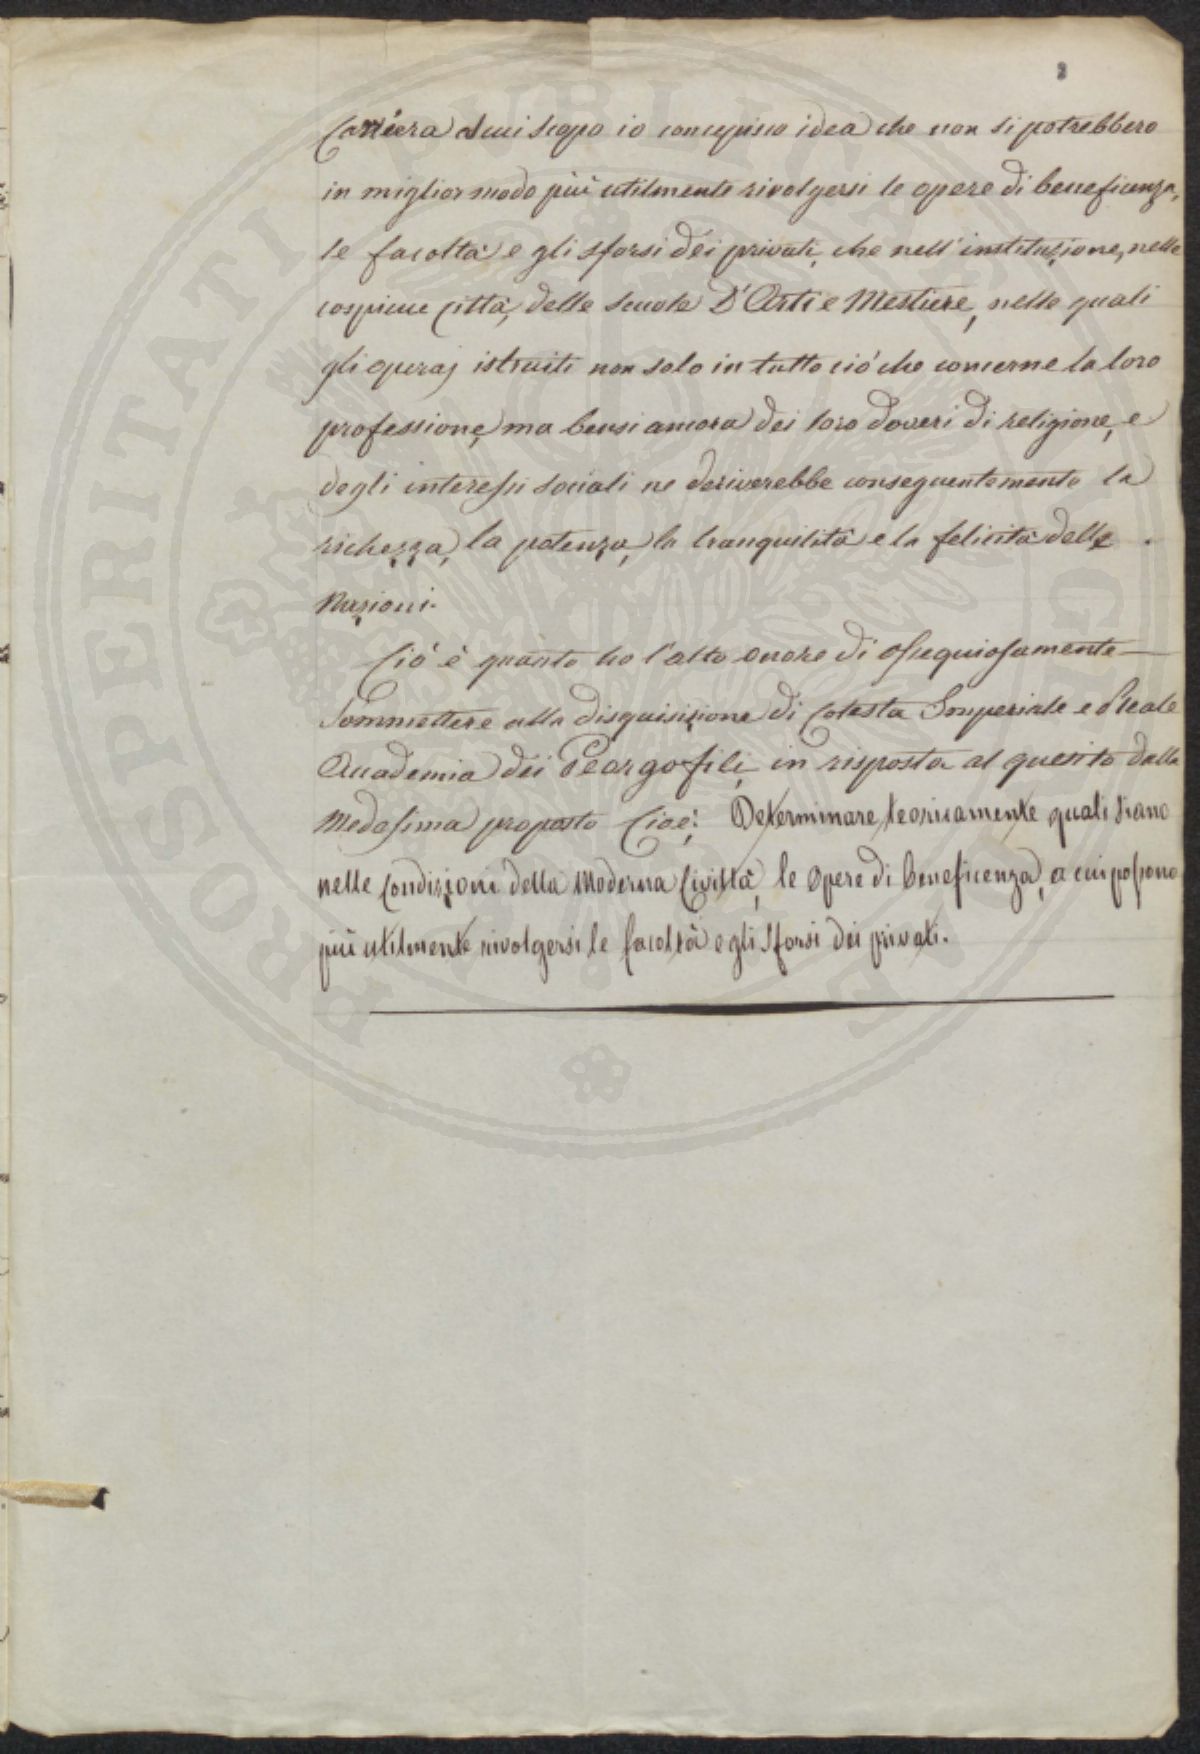 8
Carriera al cui scopo io concepisco idea che non si potrebbero
in miglior modo più utilmente rivolgersi le opere di beneficenza,
le facoltà e gli sforsi dei privati, che nell'instituzione, nelle
cospicue Città, delle Scuole D'Arti e Mestiere, nelle quali
gli operaj istruiti non solo in tutto ciò che concerne la loro
professione, ma bensi ancora dei loro doveri di religione, e
degli interessi sociali ne deriverebbe conseguentemente la
richezza, la potenza, la tranquilità e la felicità delle
Nazioni.
Ciò è quanto ho l'alto onore di ossequiosamente
Sommettere alla disquisizione di Cotesta Imperiale e Reale
Accademia dei Georgofili, in risposta al quesito dalla
Medesima proposto Cioè: Determinare teoricamente quali siano
nelle Condizioni della Moderna Civiltà, le Opere di Beneficenza, a cui possono
più utilmente rivolgersi le facoltà e gli Sforsi dei privati.
PROSPERITATI PUBLICAE AUGENDAE